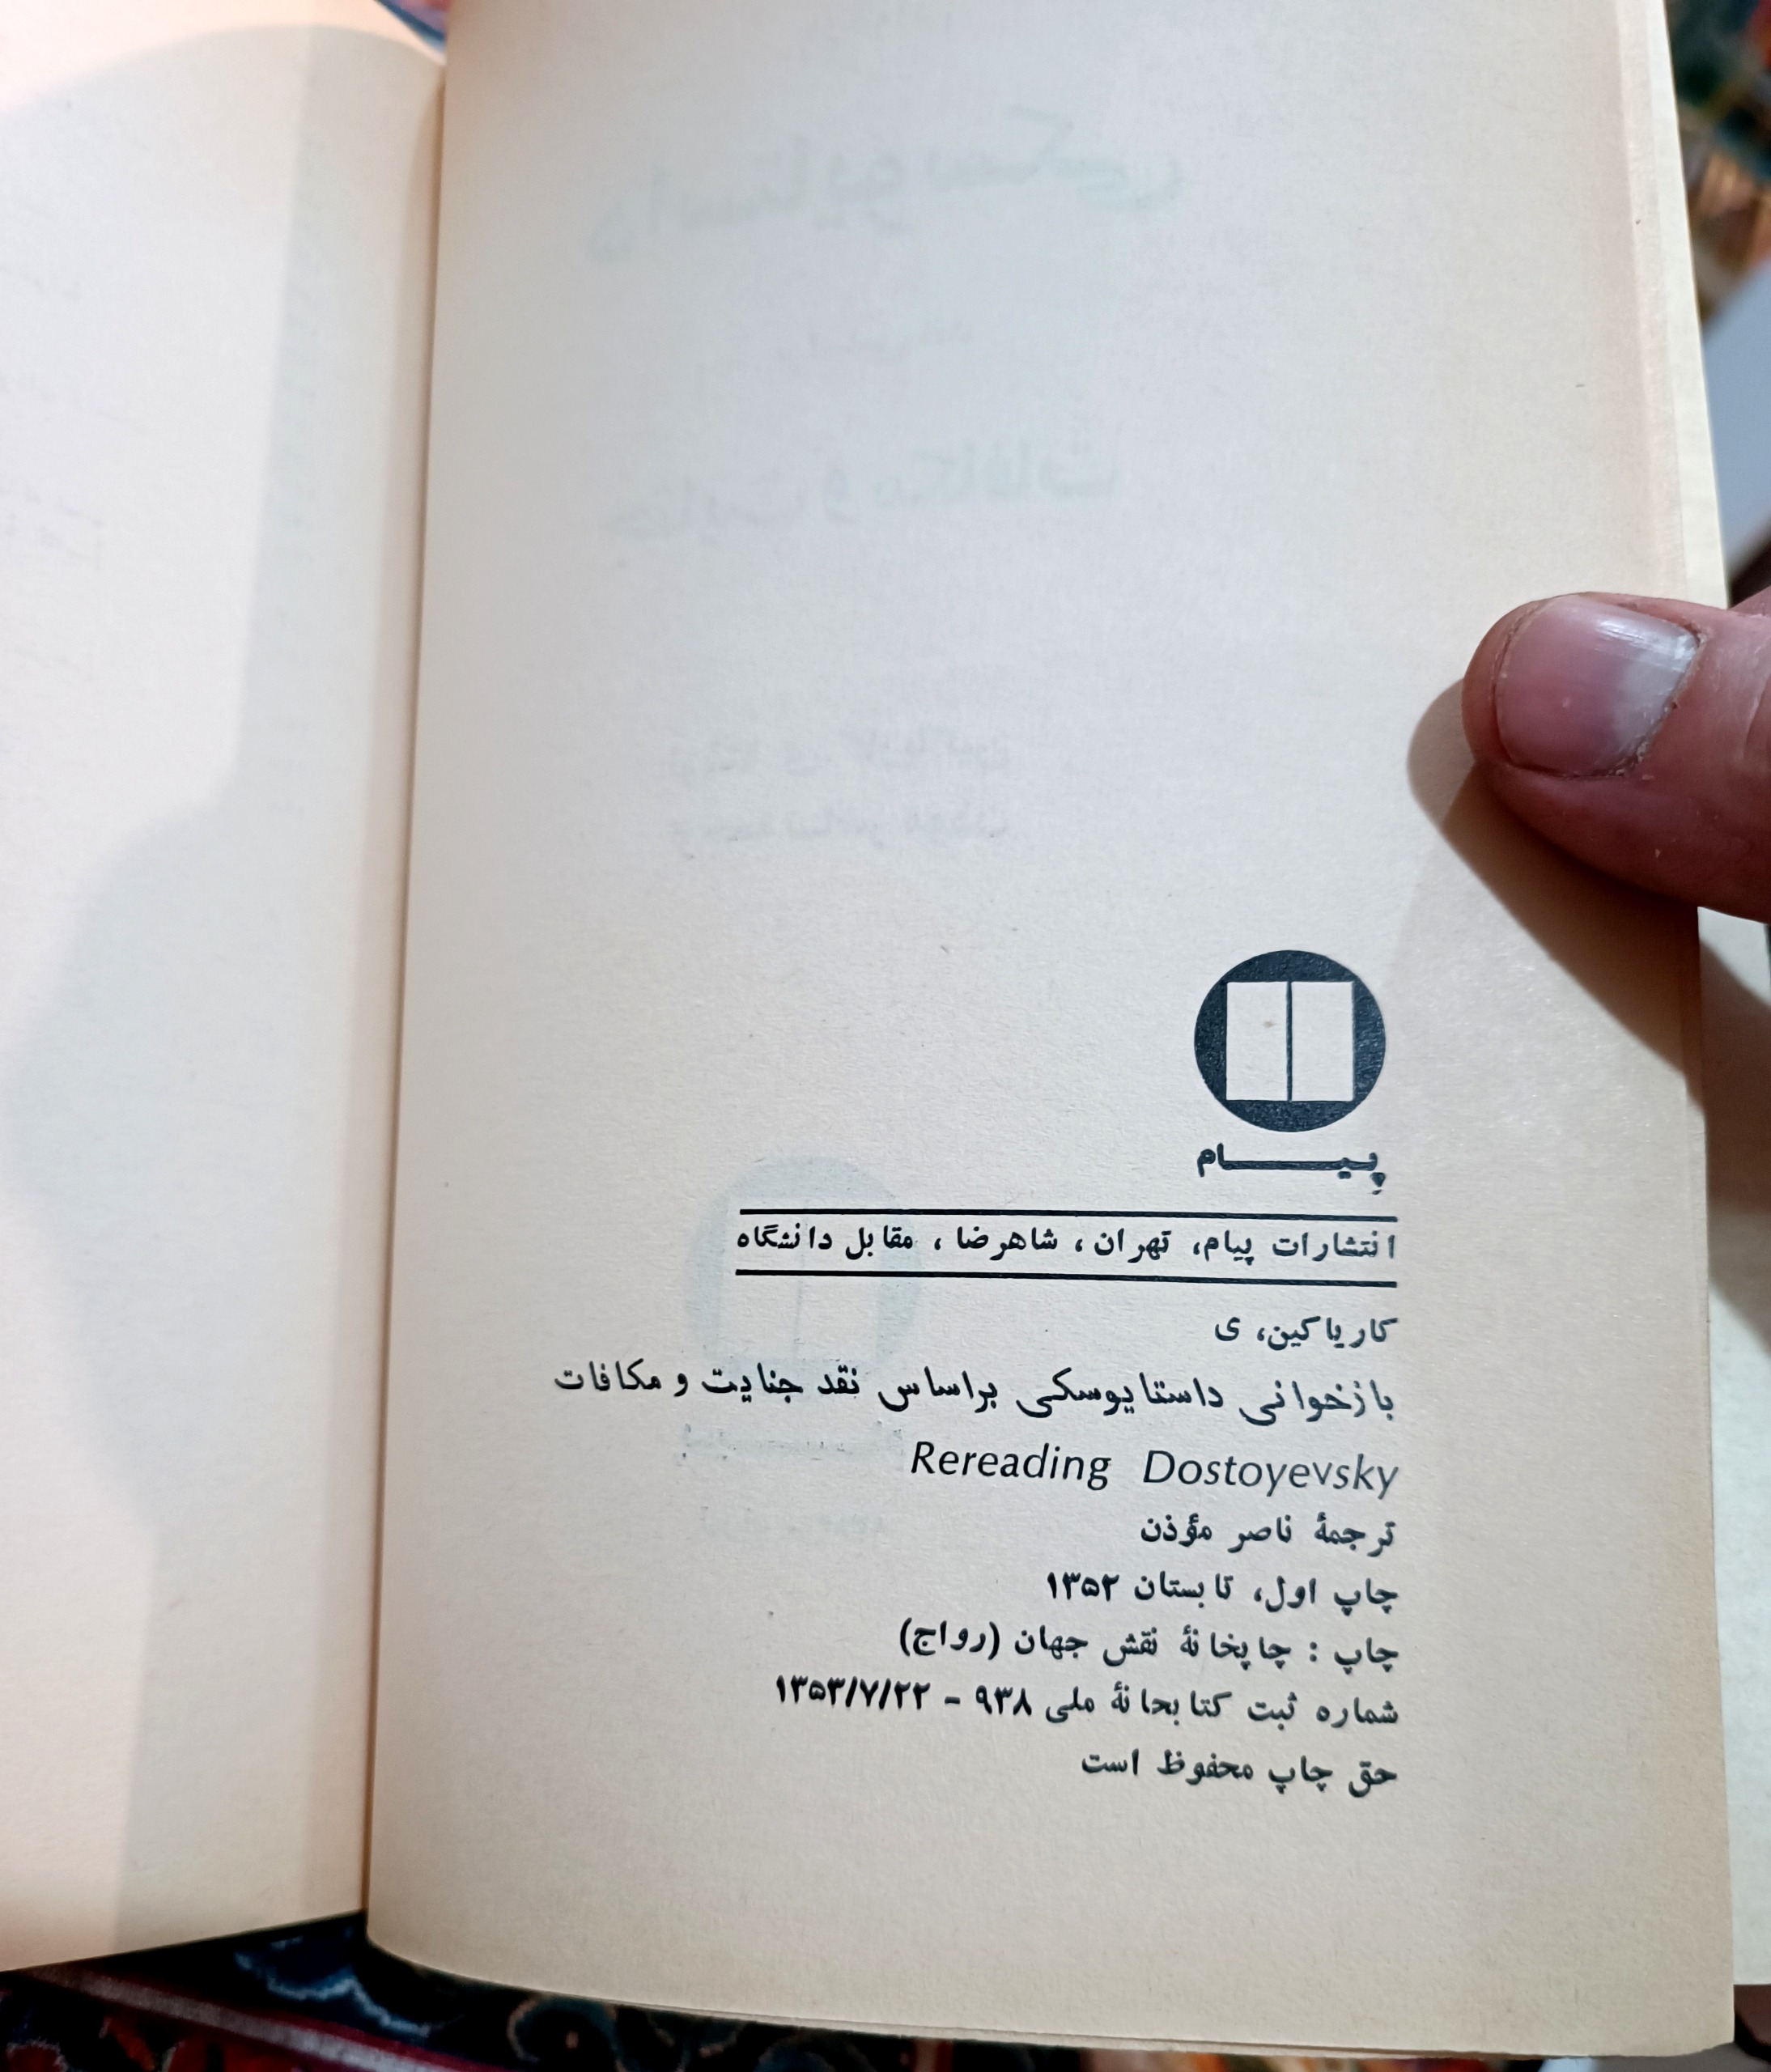 پیام
انتشارات پیام، تهران، شاهرضا، مقابل دانشگاه
کاریاکین، ی
بازخوانی داستایوسکی براساس نقد جنایت و مکافات
Rereading Dostoyevsky
ترجمهٔ ناصر مؤذن
چاپ اول، تابستان ۱۳۵۲
چاپ : چاپخانهٔ نقش جهان (رواج)
شماره ثبت کتابخانهٔ ملی ۹۳۸ - ۱۳۵۳/۷/۲۲
حق چاپ محفوظ است